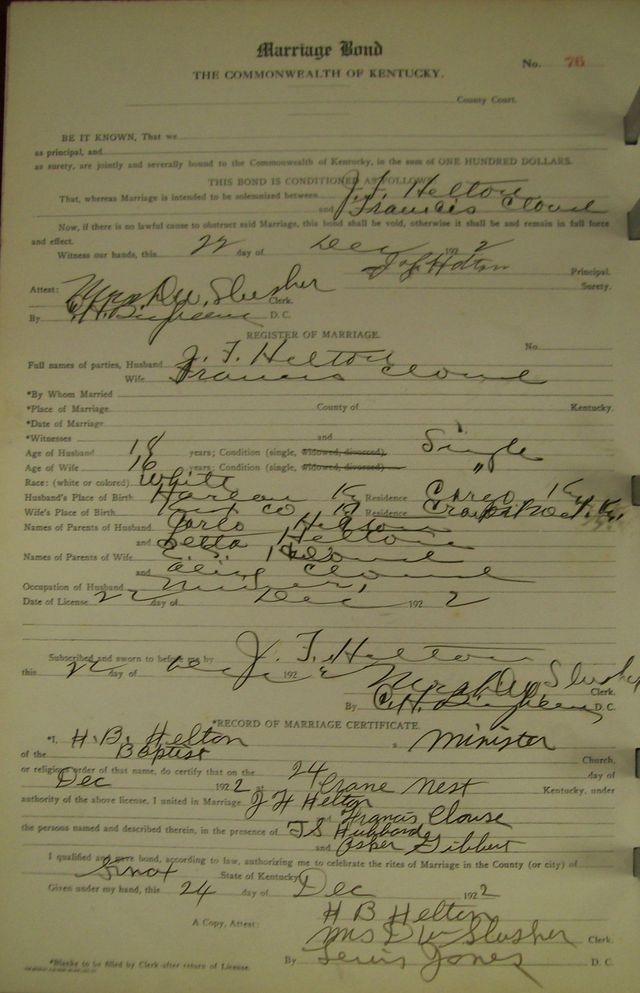 Marriage Bond
THE COMMONWEALTH OF KENTUCKY.
No. 76
County Court.
BE IT KNOWN, That we
as principal, and
as surety, are jointly and severally bound to the Commonwealth of Kentucky, in the sum of ONE HUNDRED DOLLARS.
THIS BOND IS CONDITIONED AS FOLLOWS
That, whereas Marriage is intended to be solemnized between J. F. Helton
and Francis Cloud
Now, if there is no lawful cause to obstruct said Marriage, this bond shall be void, otherwise it shall be and remain in full force
and effect.
Witness our hands, this 22 day of Dec 192 2
J. F. Helton Principal.
Surety.
Attest: Slusher Clerk.
By C. H. D. C.
REGISTER OF MARRIAGE.
No.
Full names of parties, Husband J. F. Helton
Wife Francis Cloud
*By Whom Married
*Place of Marriage County of Kentucky.
*Date of Marriage
*Witnesses and
Age of Husband 18 years; Condition (single, widowed, divorced) Single
Age of Wife 16 years; Condition (single, widowed, divorced) "
Race: (white or colored) White
Husband's Place of Birth Harlan Ky Residence Ky
Wife's Place of Birth Co Ky Residence Ky.
Names of Parents of Husband Helton
and Helton
Names of Parents of Wife Cloud
and Cloud
Occupation of Husband Miner
Date of License 22 day of Dec 192 2
Subscribed and sworn to before me by J. F. Helton
this 22 day of Dec 192 2
Slusher Clerk.
By C. H. D. C.
*RECORD OF MARRIAGE CERTIFICATE.
*I, H. B. Helton a Minister
of the Baptist Church,
or religious order of that name, do certify that on the 24 day of
Dec 192 2 at Crane Nest Kentucky, under
authority of the above license, I united in Marriage J F Helton
and Francis Clouse
the persons named and described therein, in the presence of T S Hubbard
and Gibbert
I qualified and gave bond, according to law, authorizing me to celebrate the rites of Marriage in the County (or city) of
Knox State of Kentucky
Given under my hand, this 24 day of Dec 192 2
H B Helton
A Copy, Attest: Mrs D W Slusher Clerk.
By Lewis Jones D. C.
*Blanks to be filled by Clerk after return of License.